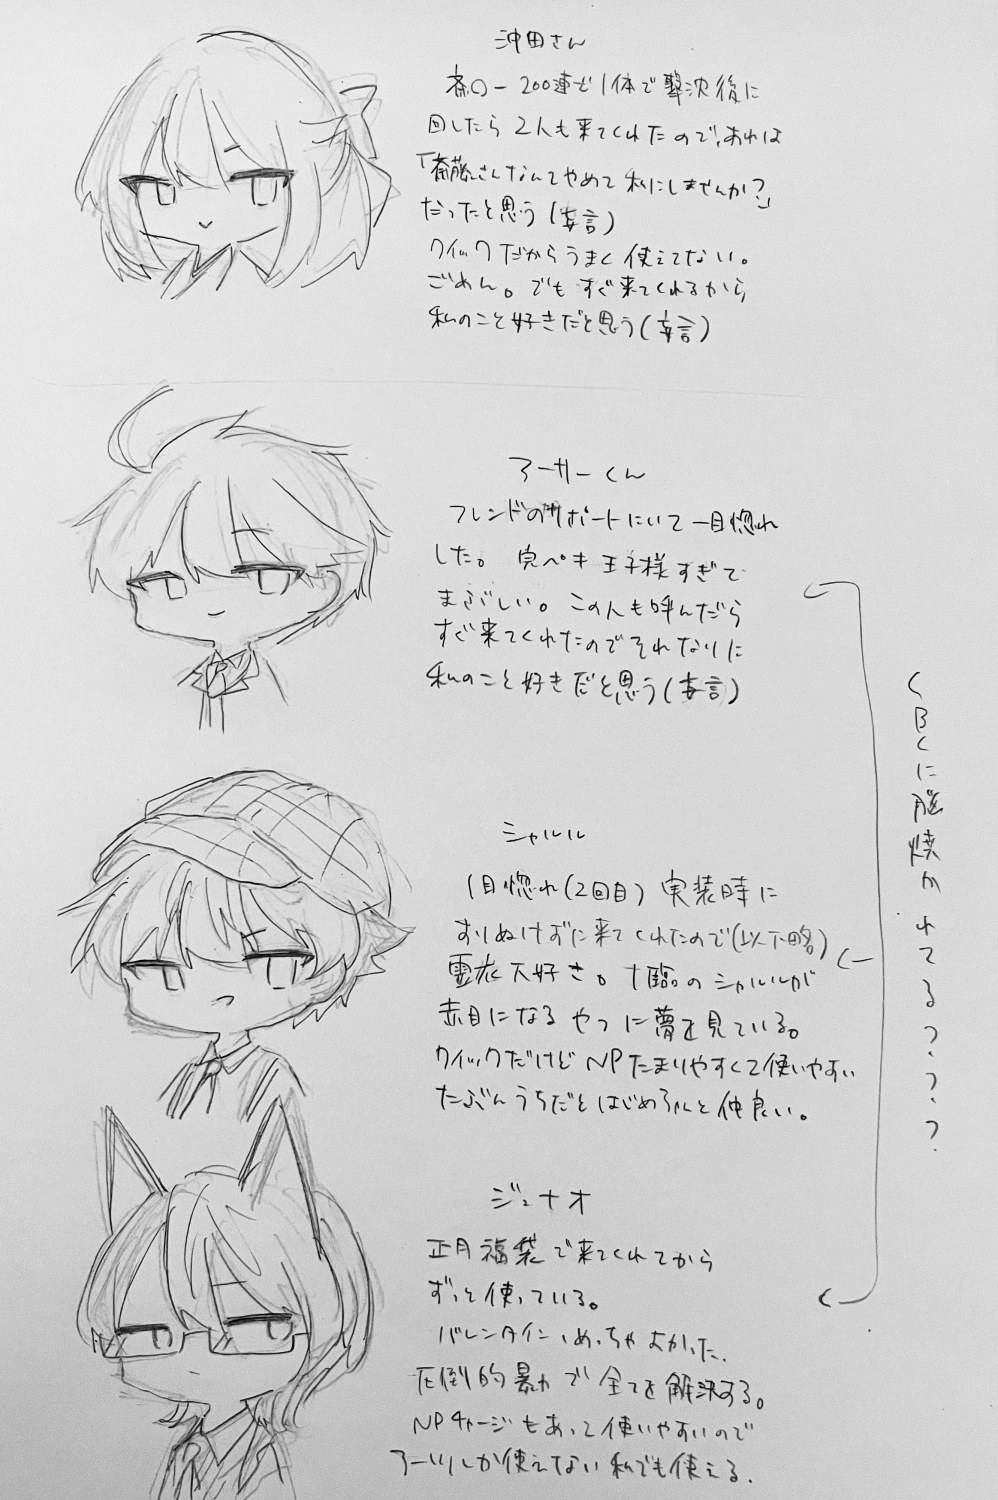 沖田さん
斎〇一 200連で1体で撃沈後に
回したら2人も来てくれたので、あれは
「斎藤さんなんてやめて私にしませんか?」
だったと思う(妄言)
クイックだからうまく使えてない。
ごめん。でもすぐ来てくれるから
私のこと好きだと思う(妄言)
アーサーくん
フレンドのサポートにいて一目惚れ
した。完ペキ王子様すぎて
まぶしい。この人も呼んだら
すぐ来てくれたのでそれなりに
私のこと好きだと思う(妄言)
シャルル
1目惚れ(2回目) 実装時に
すりぬけずに来てくれたので(以下略)
霊衣大好き。十臨のシャルルが
赤目になるやつに夢を見ている。
クイックだけどNPたまりやすくて使いやすい
たぶんうちだとはじめちゃんと仲良い。
ジュナオ
正月福袋で来てくれてから
ずっと使っている。
バレンタイン、めっちゃよかった.
圧倒的暴力で全てを解決する。
NPチャージもあって使いやすいので
アーツしか使えない私でも使える.
CBCに脳焼かれてる???